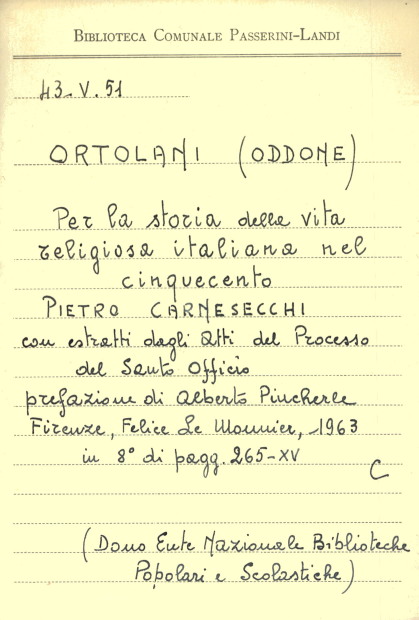 BIBLIOTECA COMUNALE PASSERINI-LANDI
43-V.51
ORTOLANI (ODDONE)
Per la storia della vita
religiosa italiana nel
cinquecento
PIETRO CARNESECCHI
con estratti dagli Atti del Processo
del Santo Officio
prefazione di Alberto Pincherle
Firenze, Felice Le Monnier, 1963
in 8° di pagg. 265-XV
C
(Dono Ente Nazionale Biblioteche
Popolari e Scolastiche)